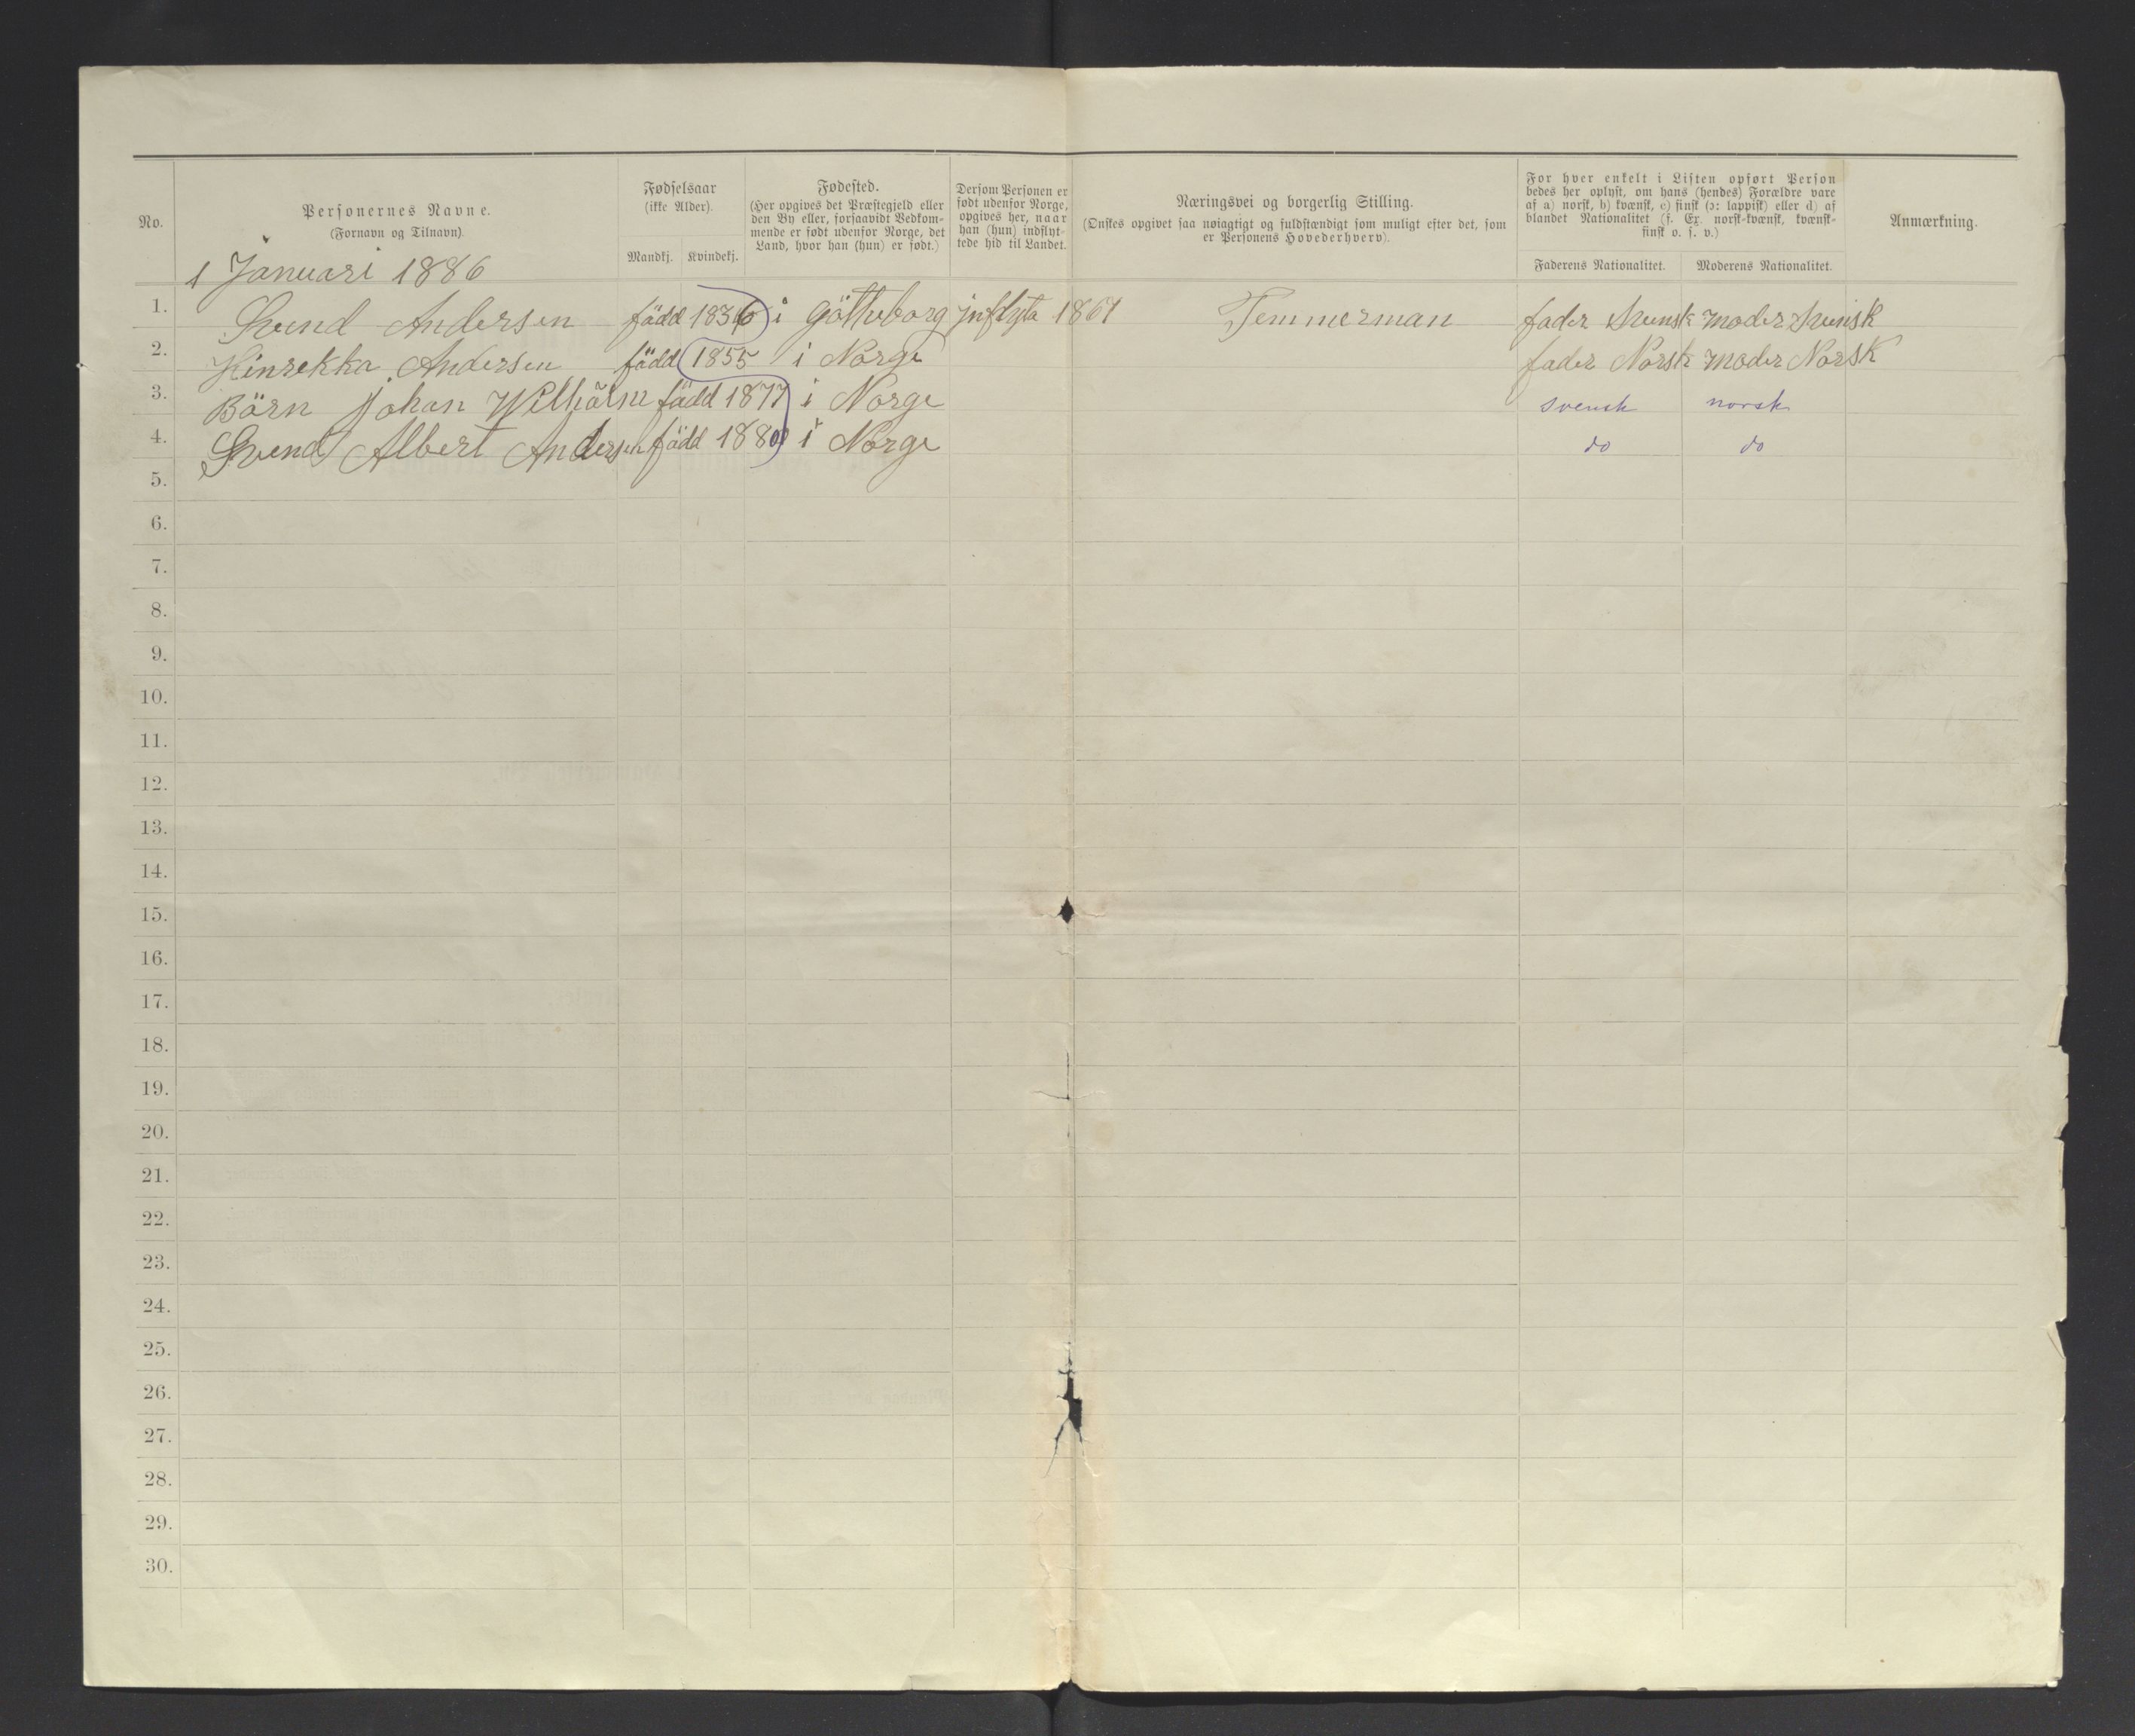 No.
Personernes Navne.
(Fornavn og Tilnavn).
Fødselsaar
(ikke Alder).
Mandkj. Kvindekj.
Fødested.
(Her opgives det Præstegjeld eller
den By eller, forsaavidt Vedkom-
mende er født udenfor Norge, det
Land, hvor han (hun) er født.)
Dersom Personen er
født udenfor Norge,
opgives her, naar
han (hun) indflyt-
tede hid til Landet.
Næringsvei og borgerlig Stilling.
(Ønskes opgivet saa nøiagtigt og fuldstændigt som muligt efter det, som
er Personens Hovederhverv).
For hver enkelt i Listen opført Person
bedes her oplyst, om hans (hendes) Forældre vare
af a) norsk, b) kvænsk, c) finsk (ɔ: lappisk) eller d) af
blandet Nationalitet (f. Ex. norsk-kvænsk, kvænsk-
finsk o. s. v.)
Faderens Nationalitet. Moderens Nationalitet.
Anmærkning.
1 Januari 1886
1. Svend Andersen född 1836 i Götheborg jnflyta 1861 Temmerman fader Svensk moder Svensk
2. Hinrekka Andersen född 1855 i Norge fader Norsk moder Norsk
3. Börn Johan Wilhälm född 1877 i Norge svensk norsk
4. Svend Albert Andersen född 1880 i Norge do do
5.
6.
7.
8.
9.
10.
11.
12.
13.
14.
15.
16.
17.
18.
19.
20.
21.
22.
23.
24.
25.
26.
27.
28.
29.
30.